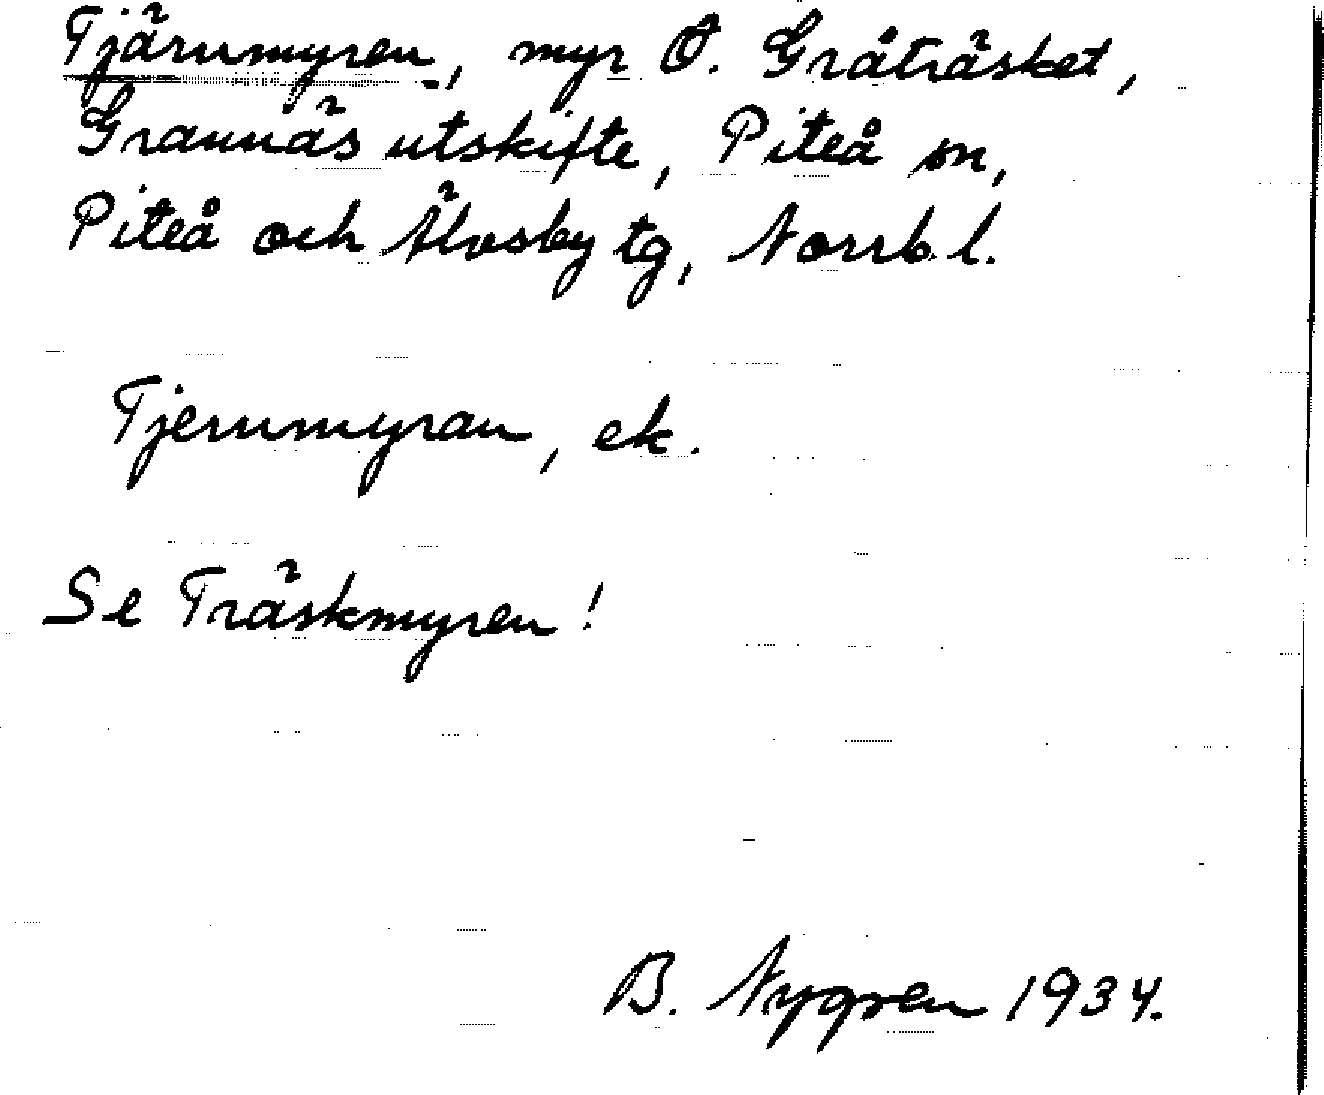 Tjärnmyren, myr Ö. Gråträsket,
Grannäs utskifte, Piteå sn,
Piteå och Älvsby tg, Norrb. l.
Tjernmyran, ek.
Se Träskmyren!
B. Nygren 1934.